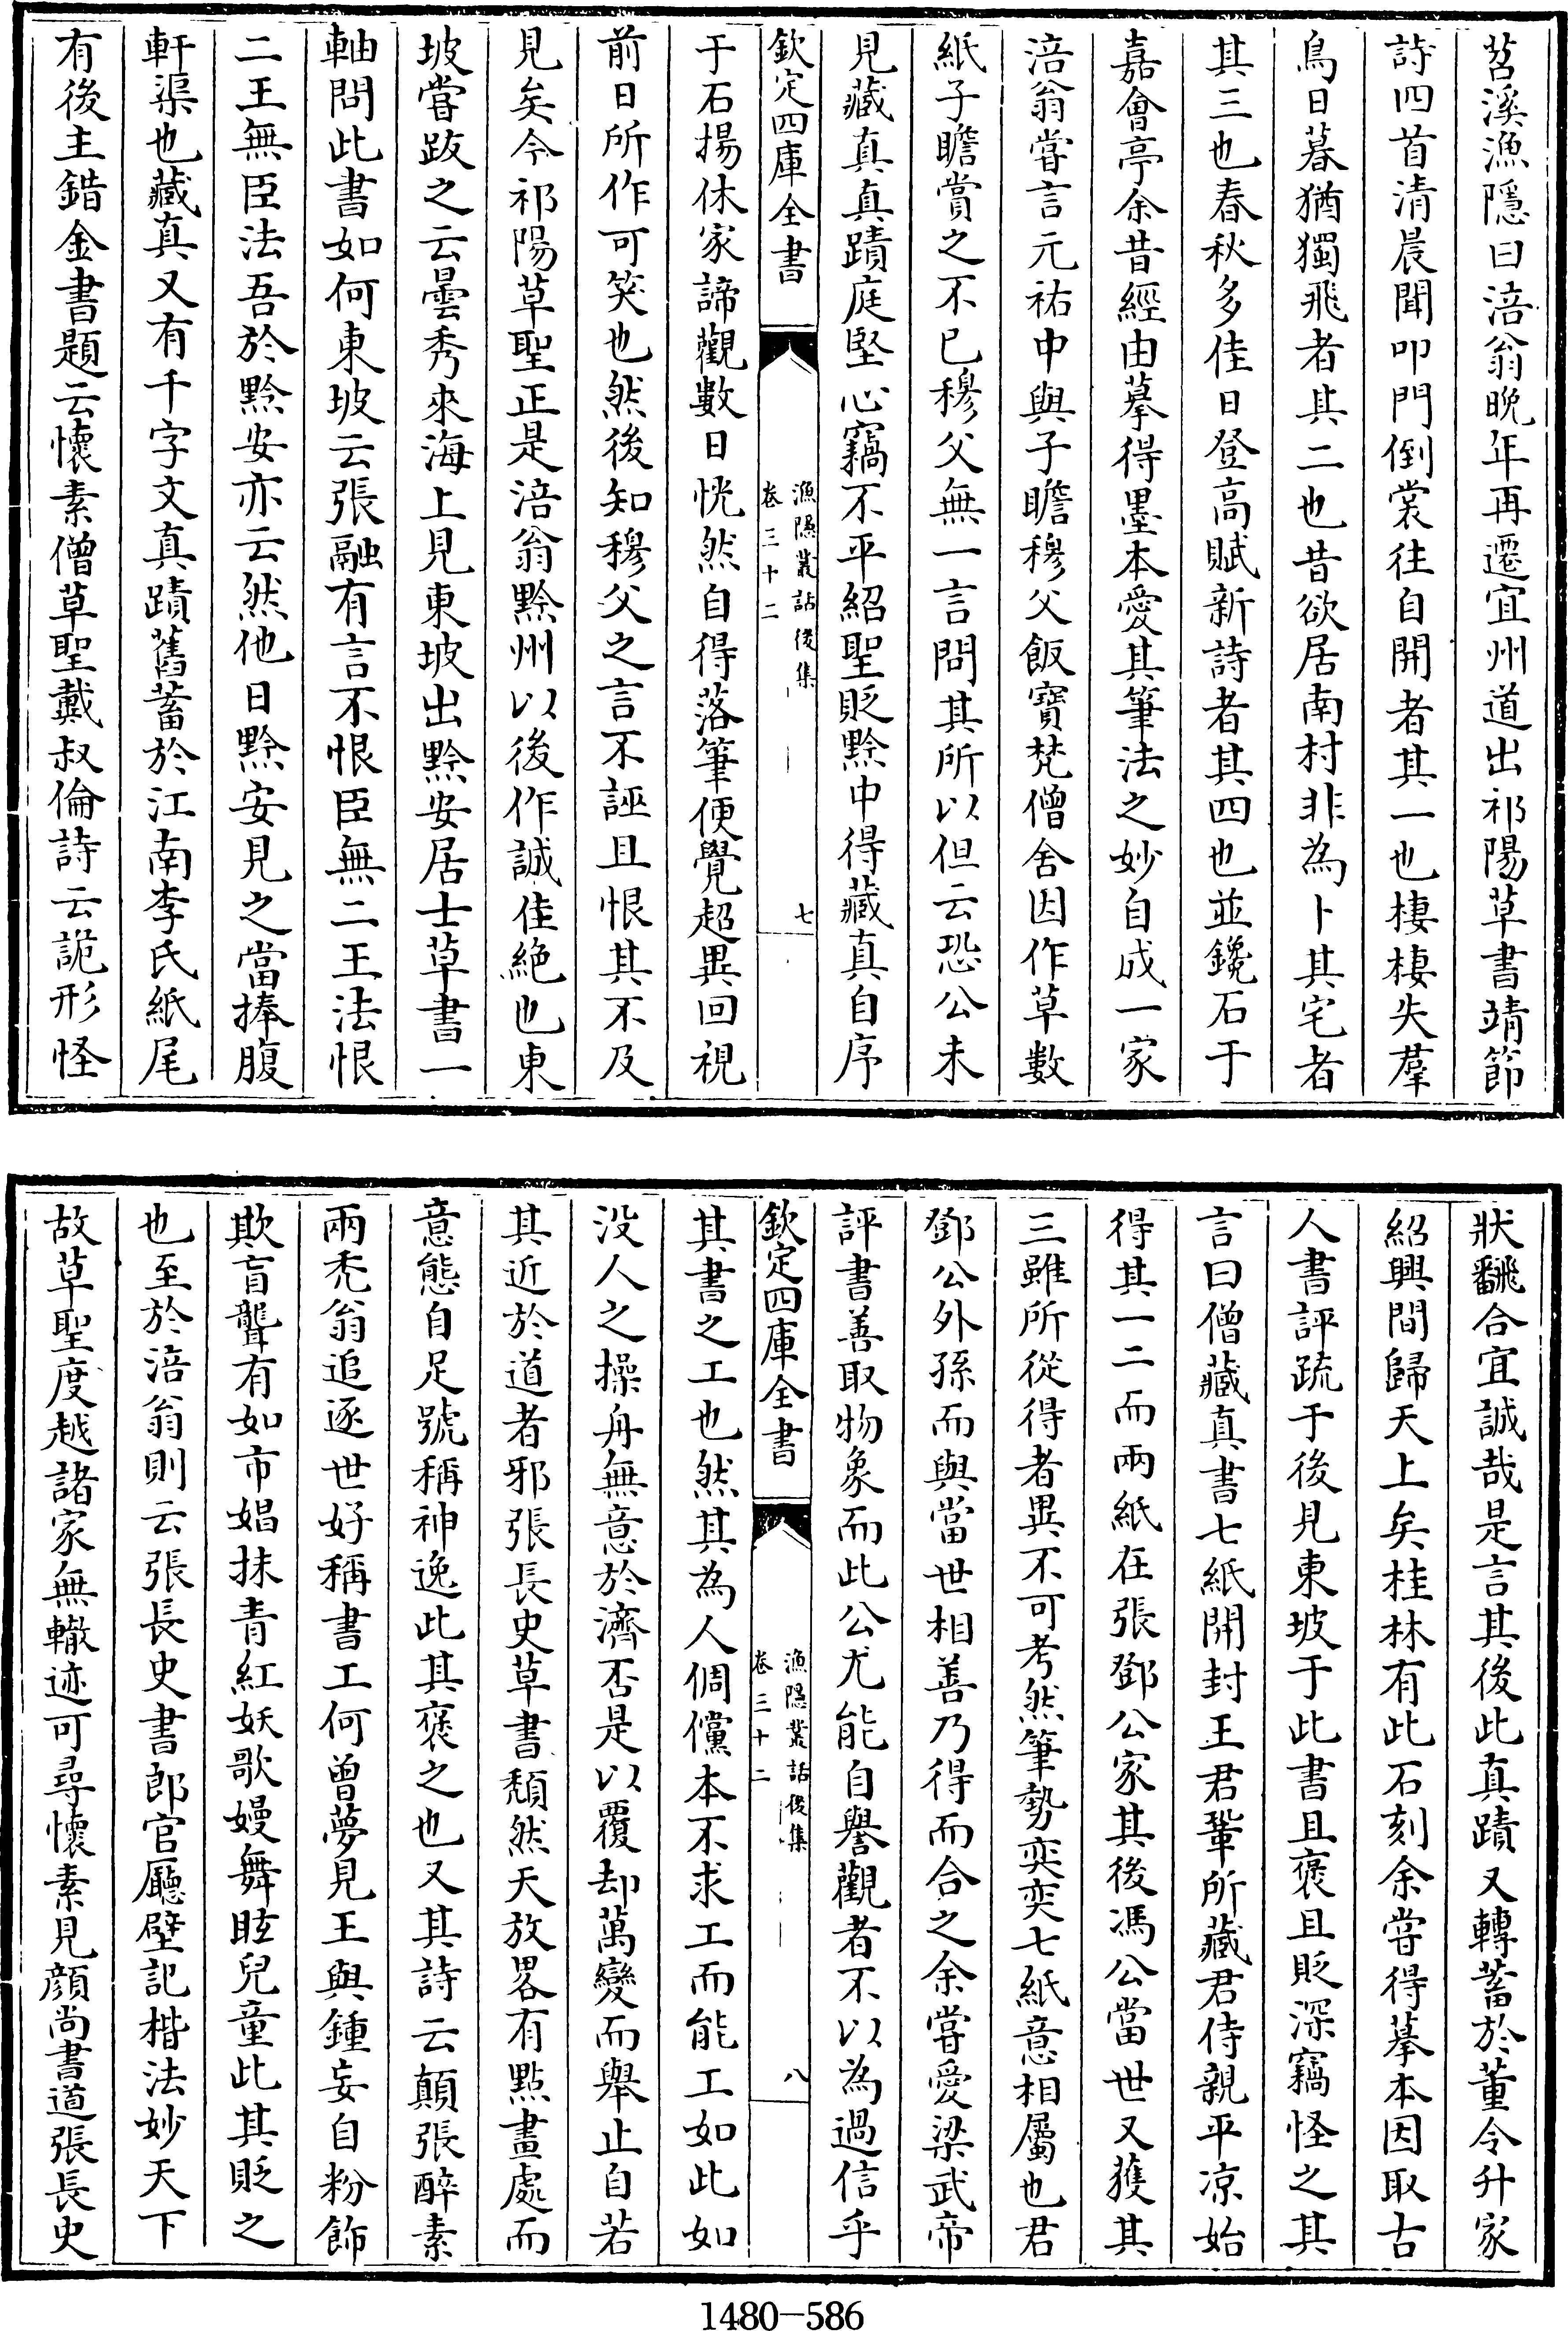 苕溪漁隱曰涪翁晚年再遷宜州道出祁陽草書靖節
詩四首清晨聞叩門倒裳往自開者其一也棲棲失羣
鳥日暮猶獨飛者其二也昔欲居南村非為卜其宅者
其三也春秋多佳日登高賦新詩者其四也並鑱石于
嘉會亭余昔經由摹得墨本愛其筆法之妙自成一家
涪翁嘗言元祐中與子瞻穆父飯寶梵僧舍因作草數
紙子瞻賞之不已穆父無一言問其所以但云恐公未
見藏真真蹟庭堅心竊不平紹聖貶黔中得藏真自序
欽定四庫全書
漁隱叢話後集
卷三十二
七
于石揚休家諦觀數日恍然自得落筆便覺超異回視
前日所作可笑也然後知穆父之言不誣且恨其不及
見矣今祁陽草聖正是涪翁黔州以後作誠佳絶也東
坡嘗跋之云曇秀來海上見東坡出黔安居士草書一
軸問此書如何東坡云張融有言不恨臣無二王法恨
二王無臣法吾於黔安亦云然他日黔安見之當捧腹
軒渠也藏真又有千字文真蹟舊蓄於江南李氏紙尾
有後主錯金書題云懷素僧草聖戴叔倫詩云詭形怪
狀飜合宜誠哉是言其後此真蹟又轉蓄於董令升家
紹興間歸天上矣桂林有此石刻余嘗得摹本因取古
人書評疏于後見東坡于此書且褒且貶深竊怪之其
言曰僧藏真書七紙開封王君鞏所藏君侍親平凉始
得其一二而兩紙在張鄧公家其後馮公當世又獲其
三雖所從得者異不可考然筆勢奕奕七紙意相屬也君
鄧公外孫而與當世相善乃得而合之余嘗愛梁武帝
評書善取物象而此公尤能自譽觀者不以為過信乎
欽定四庫全書
漁隱叢話後集
卷三十二
八
其書之工也然其為人倜儻本不求工而能工如此如
没人之操舟無意於濟否是以覆却萬變而舉止自若
其近於道者邪張長史草書頹然天放畧有點畫處而
意態自足號稱神逸此其褒之也又其詩云顛張醉素
兩禿翁追逐世好稱書工何曾夢見王與鍾妄自粉飾
欺盲聾有如市娼抹青紅妖歌嫚舞眩兒童此其貶之
也至於涪翁則云張長史書郎官廳壁記楷法妙天下
故草聖度越諸家無轍迹可尋懷素見顔尚書道張長史
1480-586